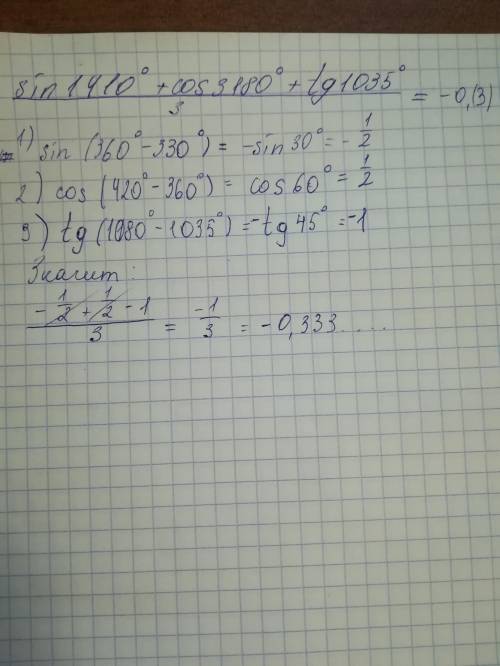 sin1410° + cos3180° + tg1035°
3
= -0,(3)
1) sin (360° - 330°) = -sin 30° = - 1/2
2) cos (420° - 360°) = cos 60° = 1/2
3) tg (1080° - 1035°) = -tg 45° = -1
Значит:
- 1/2 + 1/2 - 1
3
= -1/3 = -0,333.....